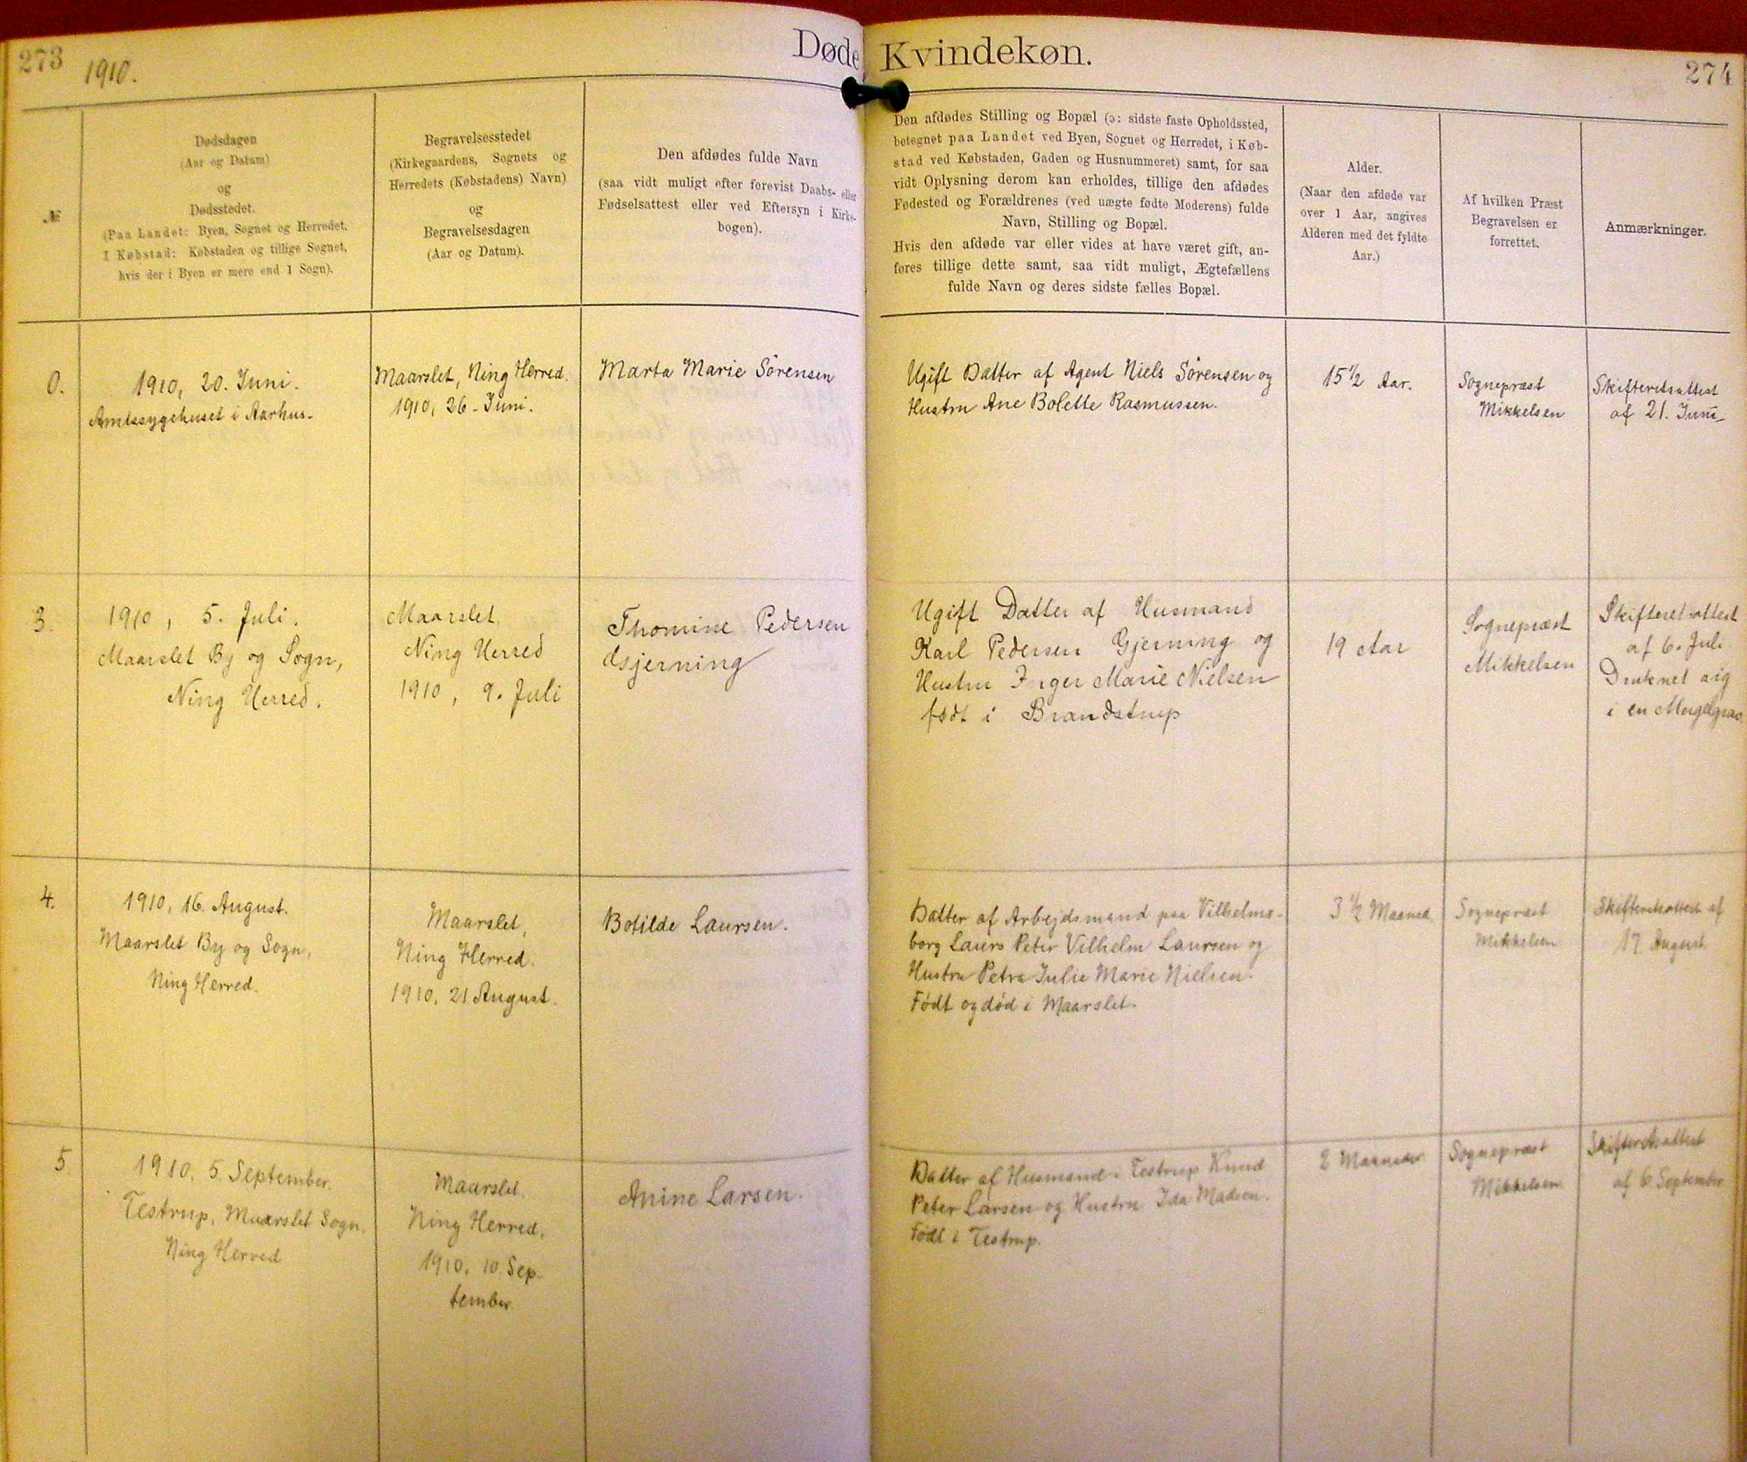 273
1910.
Døde
Kvindekøn.
274
№
Dødsdagen
(Aar og Datum)
og
Dødsstedet.
(Paa Landet: Byen, Sognet og Herredet,
I Købstad: Købstaden og tillige Sognet,
hvis der i Byen er mere end 1 Sogn).
Begravelsesstedet
(Kirkegaardens, Sognets og
Herredets (Købstadens) Navn)
og
Begravelsesdagen
(Aar og Datum).
Den afdødes fulde Navn
(saa vidt muligt efter forevist Daabs- eller
Fødselsattest eller ved Eftersyn i Kirke-
bogen).
Den afdødes Stilling og Bopæl (ɔ: sidste faste Opholdssted,
betegnet paa Landet ved Byen, Sognet og Herredet, i Køb-
stad ved Købstaden, Gaden og Husnummeret) samt, for saa
vidt Oplysning derom kan erholdes, tillige den afdødes
Fødested og Forældrenes (ved uægte fødte Moderens) fulde
Navn, Stilling og Bopæl.
Hvis den afdøde var eller vides at have været gift, an-
føres tillige dette samt, saa vidt muligt, Ægtefællens
fulde Navn og deres sidste fælles Bopæl.
Alder.
(Naar den afdøde var
over 1 Aar, angives
Alderen med det fyldte
Aar.)
Af hvilken Præst
Begravelsen er
forrettet.
Anmærkninger.
0.
1910, 20. Juni.
Amtssygehuset i Aarhus.
Maarslet, Ning Herred.
1910, 26. Juni.
Marta Marie Sörensen
Ugift Datter af Agent Niels Sörensen og
Hustru Ane Bolette Rasmussen.
15½ Aar.
Sognepræst
Mikkelsen
Skifteretsattest
af 21. Juni
3.
1910, 5. Juli.
Maarslet By og Sogn,
Ning Herred.
Maarslet,
Ning Herred
1910, 9. Juli
Thomine Pedersen
Gjerning
Ugift Datter af Husmand
Karl Pedersen Gjerning og
Hustru Inger Marie Nielsen
født i Brandstrup
19 Aar
Sognepræst
Mikkelsen
Skifteretsattest
af 6. Juli
Druknet sig
i en Mergelgrav
4.
1910, 16. August.
Maarslet By og Sogn,
Ning Herred.
Maarslet,
Ning Herred.
1910, 21 August.
Botilde Laursen.
Datter af Arbejdsmand paa Vilhelms-
borg Laurs Peter Vilhelm Laursen og
Hustru Petra Julie Marie Nielsen.
Född og död i Maarslet.
3½ Maaned
Sognepræst
Mikkelsen
Skifteretsattest af
17. August
5
1910, 5. September.
Testrup, Maarslet Sogn,
Ning Herred
Maarslet.
Ning Herred,
1910, 10. Sep-
tember.
Anine Larsen.
Datter af Husmand i Testrup Knud
Peter Larsen og Hustru Ida Madsen.
Född i Testrup.
2 Maaneder
Sognepræst
Mikkelsen
Skifteretsattest
af 6 September